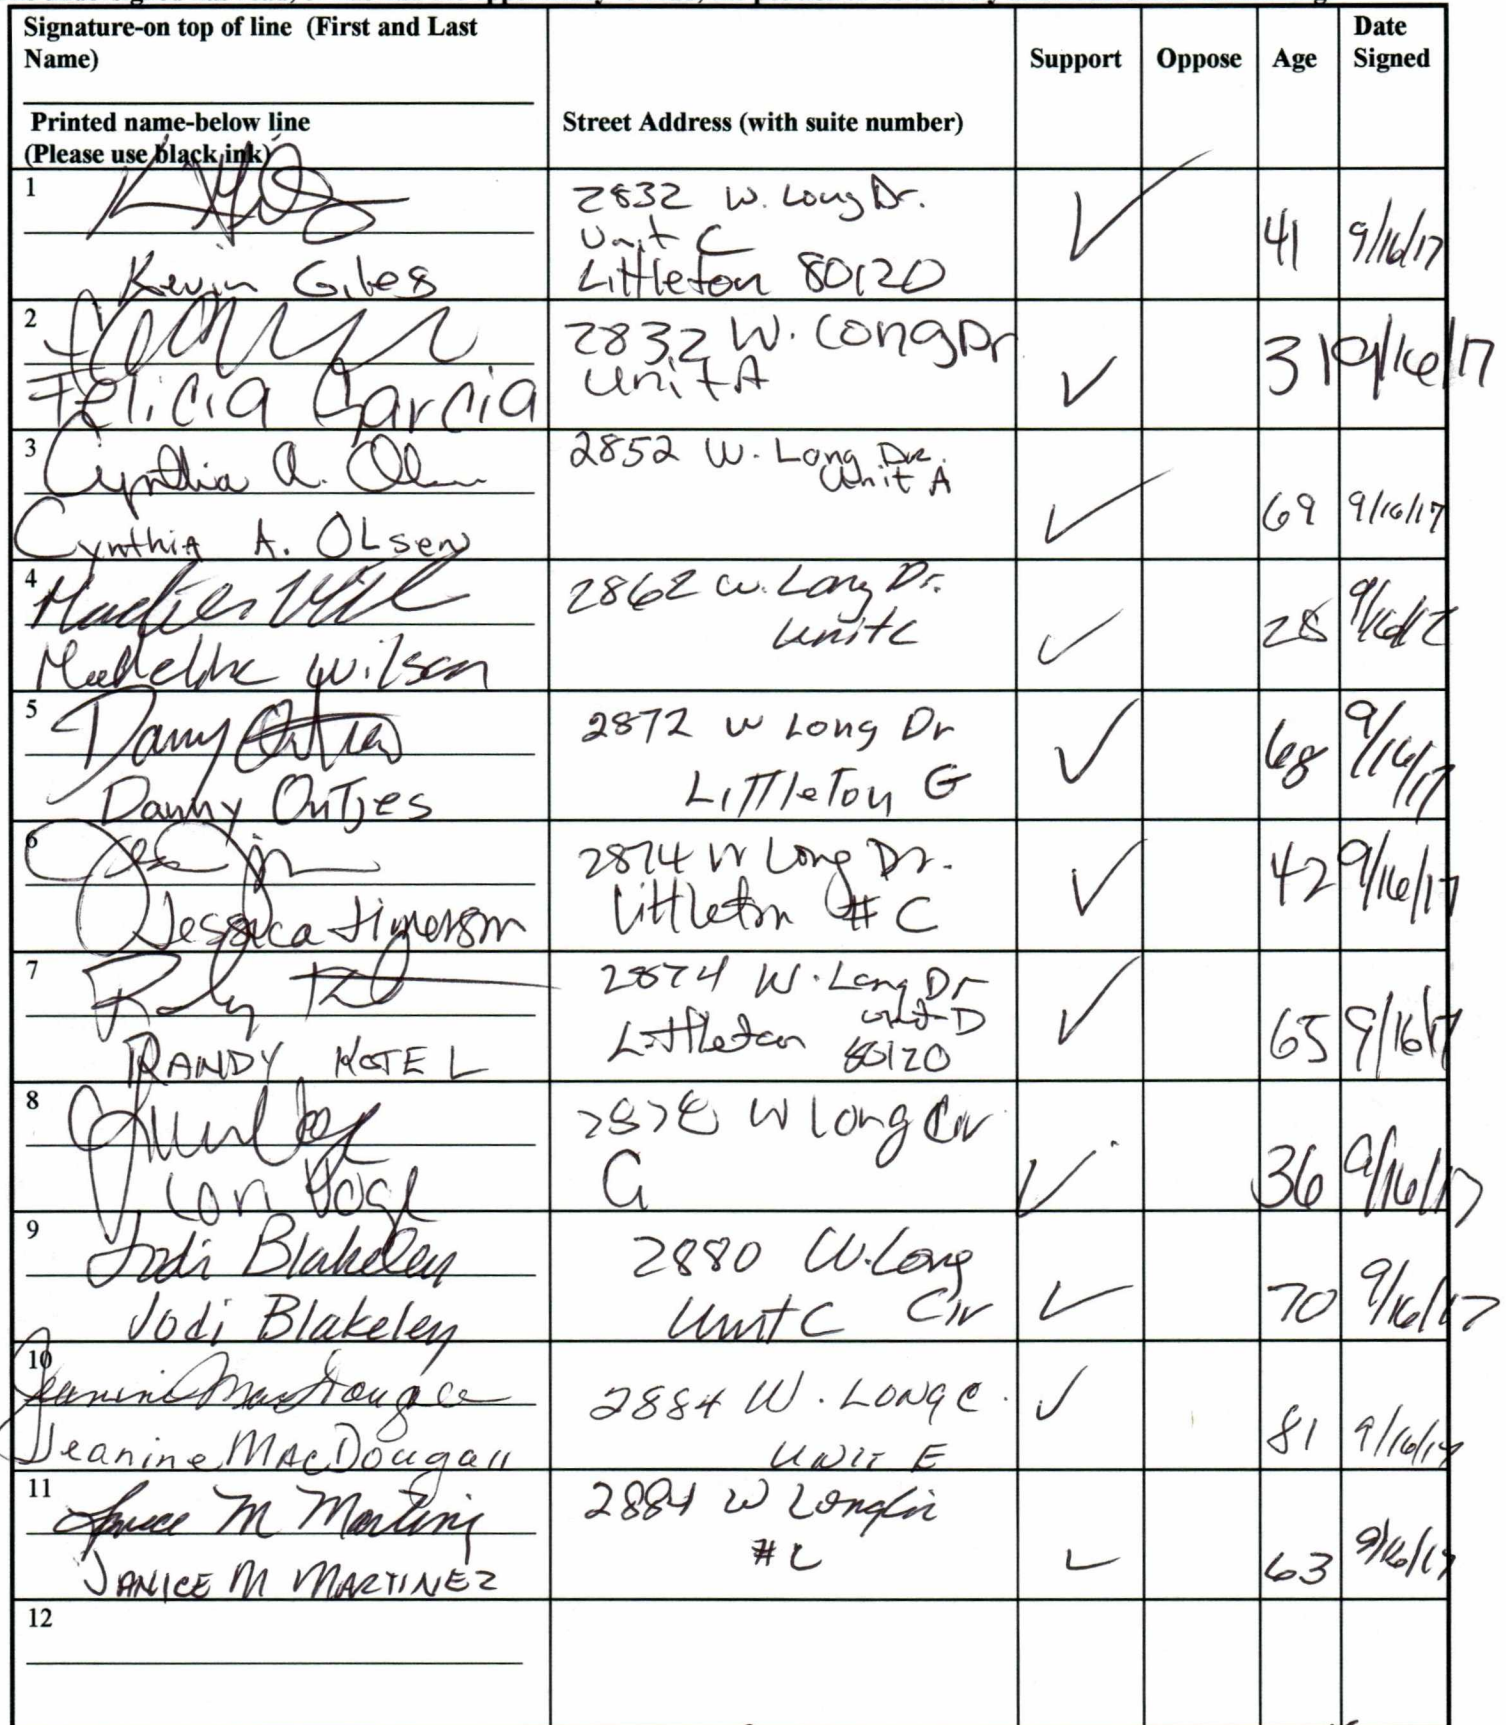 Signature-on top of line (First and Last
Name)
Printed name-below line
(Please use black ink)
Street Address (with suite number)
Support
Oppose
Age
Date
Signed
1
Kevin Giles
2832 W. Long Dr.
Unit C
Littleton 80120
41
9/16/17
2
Felicia Garcia
2832 W. Long Dr
Unit A
31
9/16/17
3
Cynthia A. Olsen
Cynthia A. OLsen
2852 W. Long Dr.
Unit A
69
9/16/17
4
Madeline Wilson
2862 W. Long Dr.
Unit C
28
9/16/17
5
Danny Ontjes
Danny OnTjes
2872 W Long Dr
LiTTleTon G
68
9/16/17
6
Jessica Jimerson
2874 W Long Dr.
Littleton # C
42
9/16/17
7
RANDY KOTEL
2874 W. Long Dr
unit D
Littleton 80120
65
9/16/17
8
Lori Vogl
2878 W Long Cir
G
36
9/16/17
9
Jodi Blakeley
Jodi Blakeley
2880 W. Long
Unit C Cir
70
9/16/17
10
Jeanine MacDougall
Jeanine MACDougall
2884 W. LONG C.
UNIT E
81
9/16/17
11
Janice M Martinez
JANICE M MARTINEZ
2884 W Long Cir
# C
63
9/16/17
12